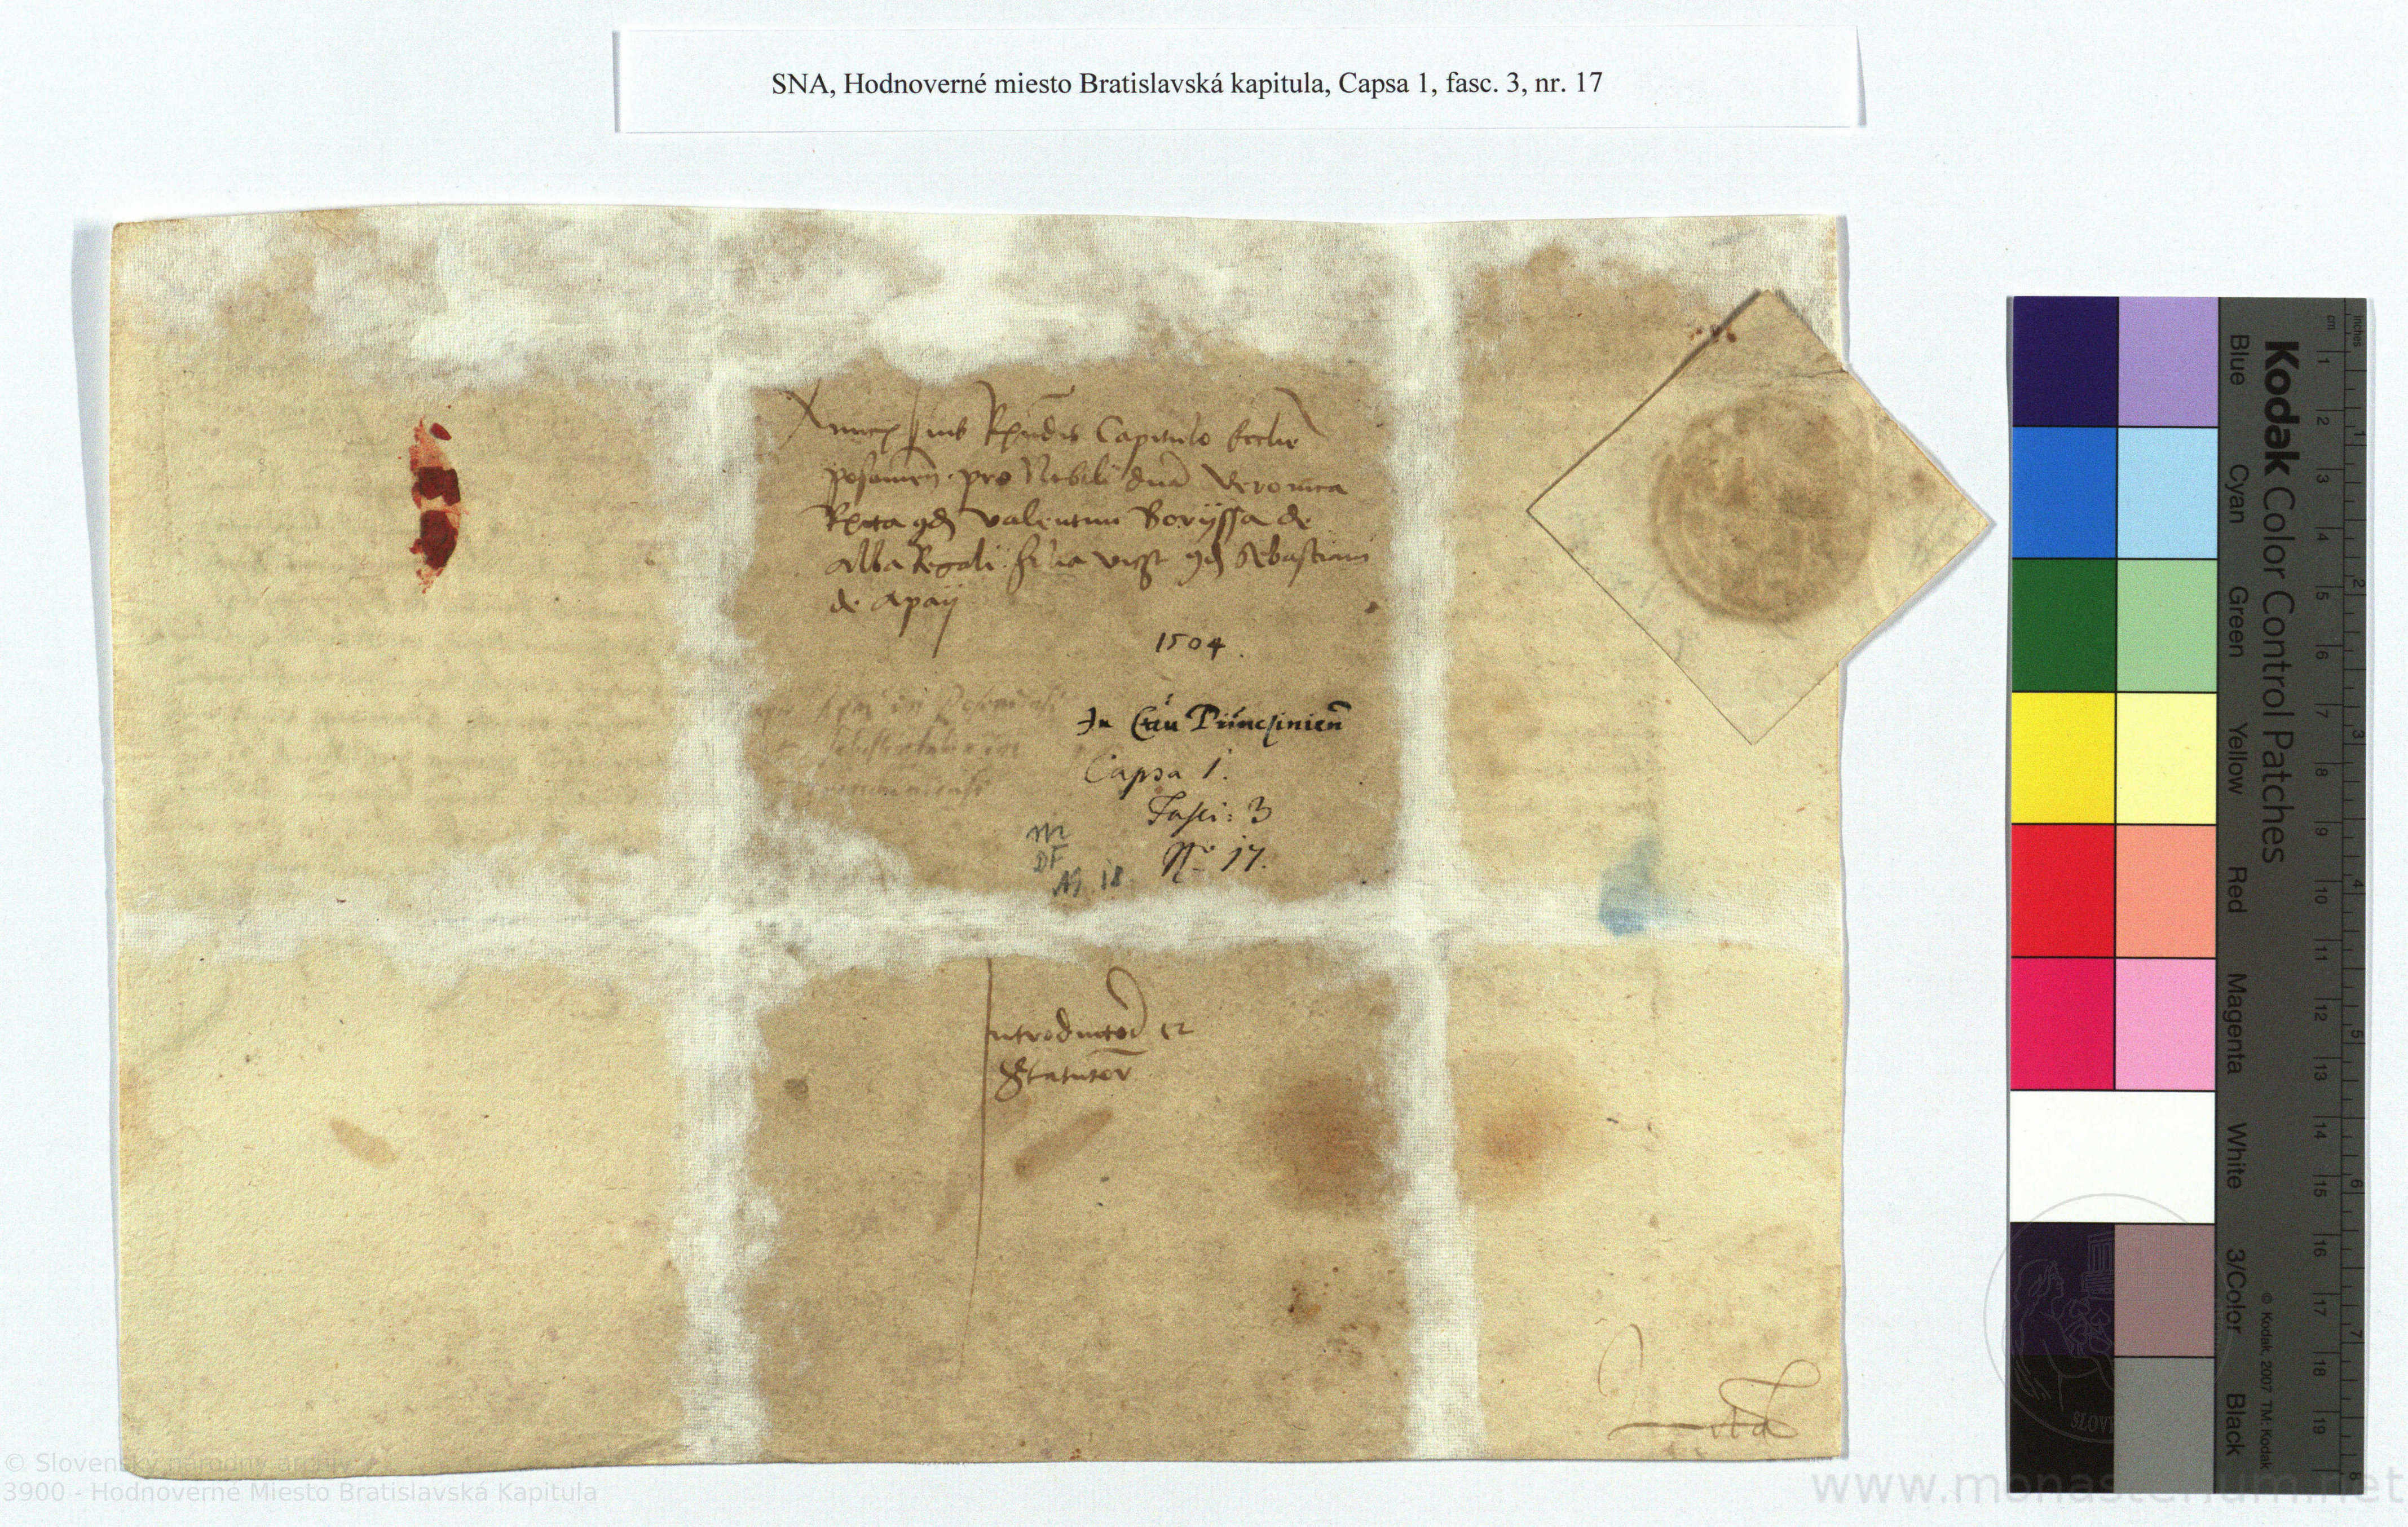 SNA, Hodnoverné miesto Bratislavská kapitula, Capsa 1, fasc. 3, nr. 17
Amicis suis Rndis Capitulo Ecclie
posonien pro Nobili dna Veronica
Relicta qd Valentini Borÿssa de
Alba Regali filia qd Sebastiani
de Apaÿ
1504.
In
Capsa 1.
Fasci: 3
No 17.
DF
18.
Introductor et
Statutor
Kodak Color Control Patches
Blue Cyan Green Yellow Red Magenta White 3/Color Black
© Kodak, 2007 TM: Kodak
inches
cm
1 2 3 4 5 6 7 8 9 10 11 12 13 14 15 16 17 18 19
1 2 3 4 5 6 7 8
© Slovenský národný archív
3900 - Hodnoverné Miesto Bratislavská Kapitula
www.monasterium.net